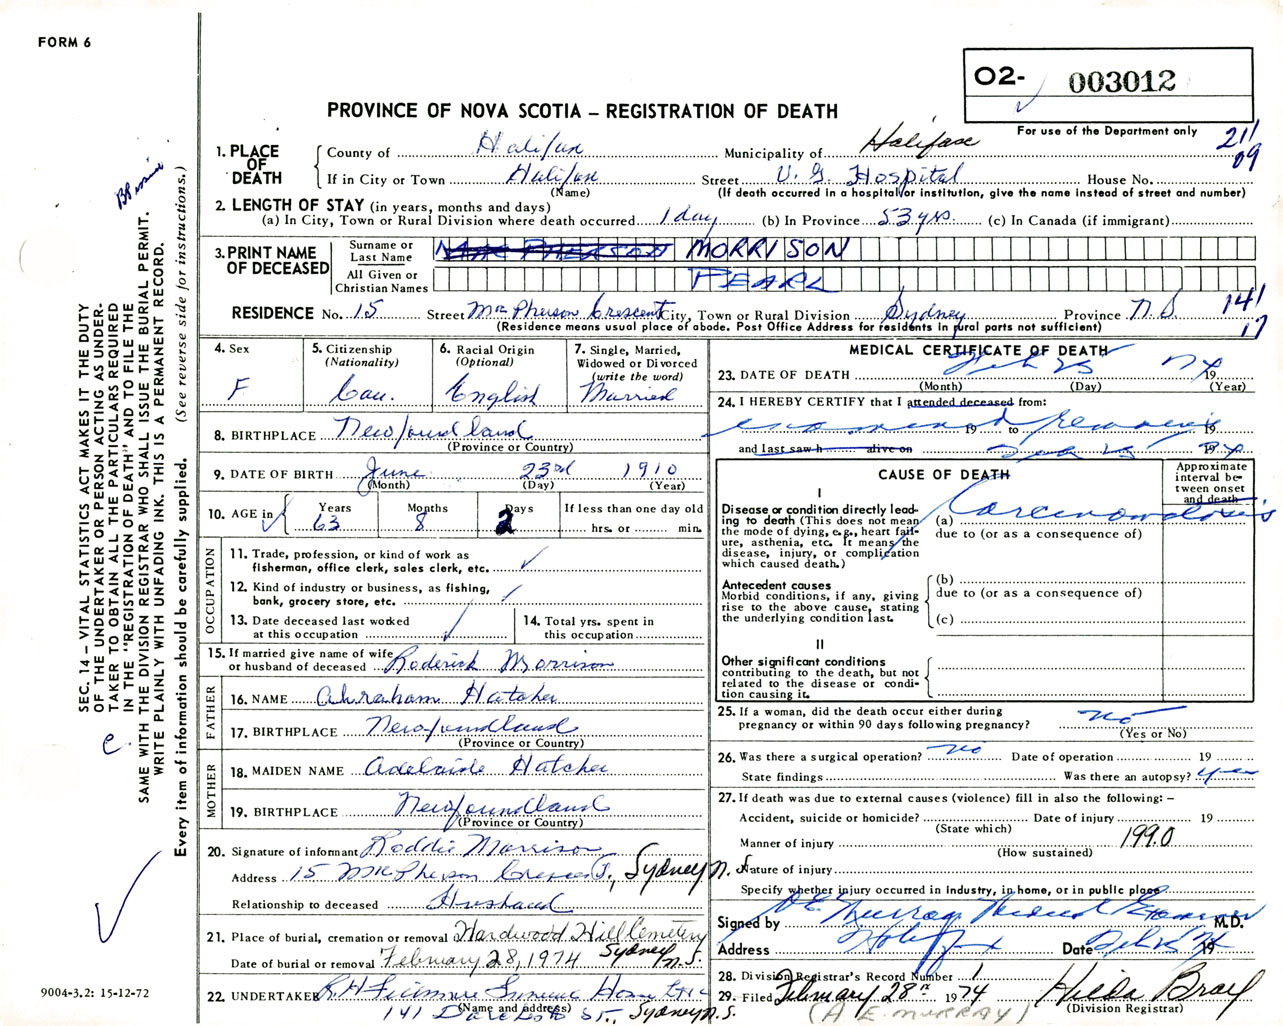 FORM 6
O2- 003012
PROVINCE OF NOVA SCOTIA – REGISTRATION OF DEATH
For use of the Department only
211
09
1. PLACE OF DEATH
County of Halifax Municipality of Halifax
If in City or Town Halifax Street V. G. Hospital House No.
(Name) (If death occurred in a hospital or institution, give the name instead of street and number)
2. LENGTH OF STAY (in years, months and days)
(a) In City, Town or Rural Division where death occurred 1 day (b) In Province 53 yrs. (c) In Canada (if immigrant)
3. PRINT NAME OF DECEASED
Surname or Last Name MORRISON
All Given or Christian Names PEARL
RESIDENCE No. 15 Street McPherson Crescent City, Town or Rural Division Sydney Province N.S.
(Residence means usual place of abode. Post Office Address for residents in rural parts not sufficient)
141
17
4. Sex
F
5. Citizenship
(Nationality)
Can.
6. Racial Origin
(Optional)
English
7. Single, Married,
Widowed or Divorced
(write the word)
Married
8. BIRTHPLACE Newfoundland
(Province or Country)
9. DATE OF BIRTH June 23rd 1910
(Month) (Day) (Year)
10. AGE in
Years Months Days If less than one day old
63 8 2 hrs. or min.
OCCUPATION
11. Trade, profession, or kind of work as
fisherman, office clerk, sales clerk, etc.
12. Kind of industry or business, as fishing,
bank, grocery store, etc.
13. Date deceased last worked
at this occupation
14. Total yrs. spent in
this occupation
15. If married give name of wife
or husband of deceased Roderick Morrison
FATHER
16. NAME Abraham Hatcher
17. BIRTHPLACE Newfoundland
(Province or Country)
MOTHER
18. MAIDEN NAME Adelaide Hatcher
19. BIRTHPLACE Newfoundland
(Province or Country)
20. Signature of informant Roddie Morrison
Address 15 McPherson Crescent, Sydney N.S.
Relationship to deceased Husband
21. Place of burial, cremation or removal Hardwood Hill Cemetery
Sydney N.S.
Date of burial or removal February 28, 1974
22. UNDERTAKER Funeral Home
(Name and address)
141 St., Sydney N.S.
MEDICAL CERTIFICATE OF DEATH
23. DATE OF DEATH Feb 25 1974
(Month) (Day) (Year)
24. I HEREBY CERTIFY that I attended deceased from:
examined remains
19 to 19
and last saw h alive on 19
CAUSE OF DEATH
Approximate
interval be-
tween onset
and death
I
Disease or condition directly lead-
ing to death (This does not mean
the mode of dying, e.g., heart fail-
ure, asthenia, etc. It means the
disease, injury, or complication
which caused death.)
(a) Carcinomatosis
due to (or as a consequence of)
Antecedent causes
Morbid conditions, if any, giving
rise to the above cause, stating
the underlying condition last.
(b)
due to (or as a consequence of)
(c)
II
Other significant conditions
contributing to the death, but not
related to the disease or condi-
tion causing it.
25. If a woman, did the death occur either during
pregnancy or within 90 days following pregnancy? no
(Yes or No)
26. Was there a surgical operation? no Date of operation 19
State findings Was there an autopsy? yes
27. If death was due to external causes (violence) fill in also the following: –
Accident, suicide or homicide? Date of injury 19
(State which)
Manner of injury 1990
(How sustained)
Nature of injury
Specify whether injury occurred in Industry, in home, or in public place
Signed by Murray Medical Examiner M.D.
Address Halifax Date Feb 19
28. Division Registrar's Record Number 1
29. Filed February 28th 1974 Hilda Bray
(Division Registrar)
(A E. MURRAY)
SEC. 14 – VITAL STATISTICS ACT MAKES IT THE DUTY
OF THE UNDERTAKER OR PERSON ACTING AS UNDER-
TAKER TO OBTAIN ALL THE PARTICULARS REQUIRED
IN THE "REGISTRATION OF DEATH" AND TO FILE THE
SAME WITH THE DIVISION REGISTRAR WHO SHALL ISSUE THE BURIAL PERMIT.
WRITE PLAINLY WITH UNFADING INK. THIS IS A PERMANENT RECORD.
Every item of information should be carefully supplied. (See reverse side for instructions.)
9004-3.2: 15-12-72